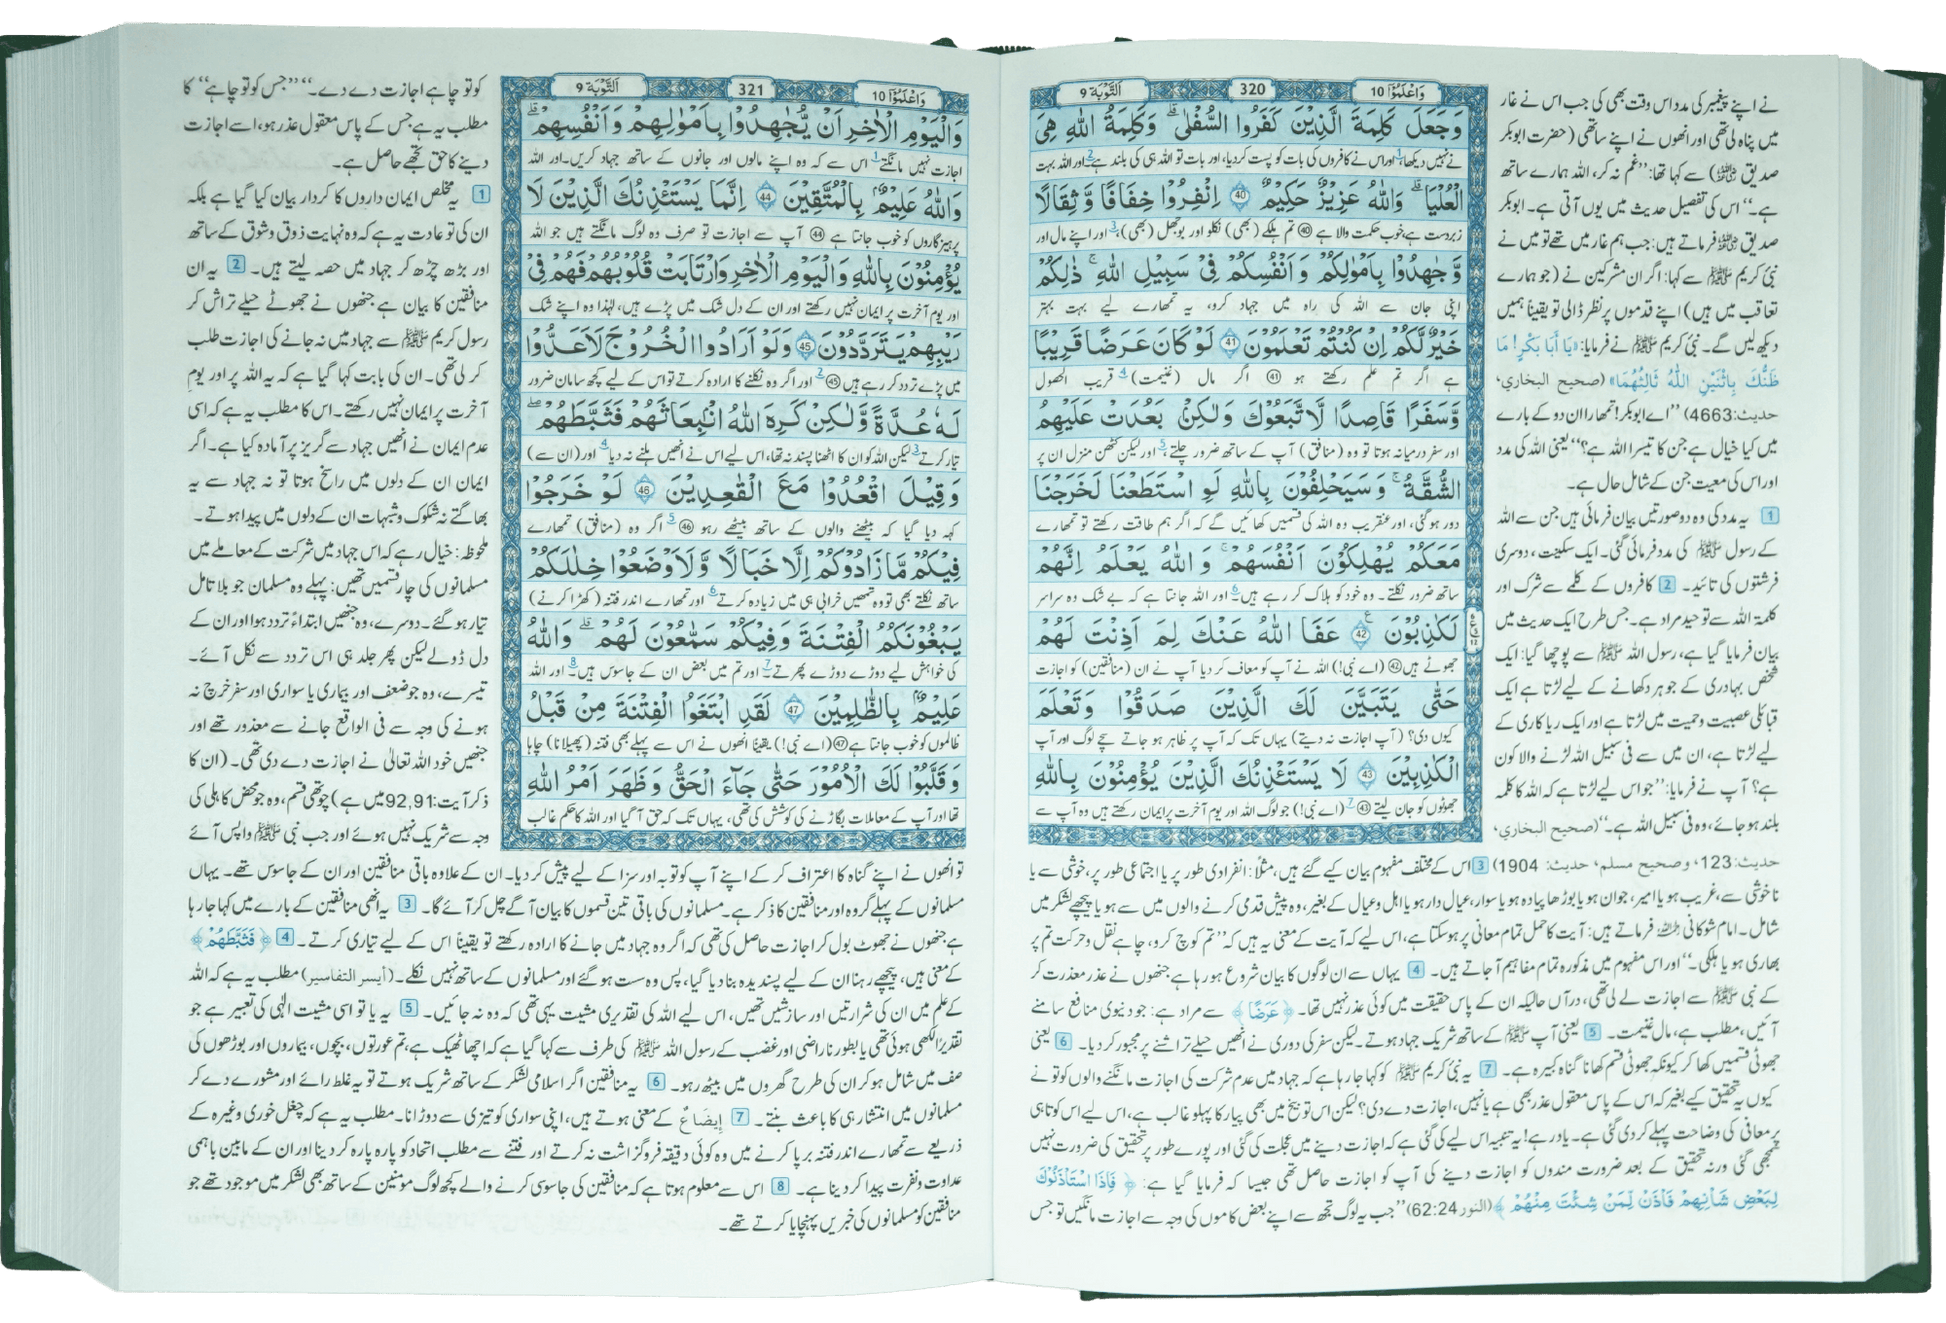 وَاعْلَمُوْٓا 10
320
اَلتَّوْبَة 9
وَجَعَلَ كَلِمَةَ الَّذِيْنَ كَفَرُوا السُّفْلٰى ۗ وَكَلِمَةُ اللّٰهِ هِيَ
نے نہیں دیکھا،1 اور اس نے کافروں کی بات کو پست کر دیا، اور بات تو اللہ ہی کی بلند ہے2 اور اللہ بہت
الْعُلْيَا ۗ وَاللّٰهُ عَزِيْزٌ حَكِيْمٌ 40 اِنْفِرُوْا خِفَافًا وَّثِقَالًا
زبردست ہے، خوب حکمت والا ہے 40 تم ہلکے (بھی) نکلو اور بوجھل (بھی)،3 اور اپنے مال اور
وَّجَاهِدُوْا بِاَمْوَالِكُمْ وَاَنْفُسِكُمْ فِيْ سَبِيْلِ اللّٰهِ ۚ ذٰلِكُمْ
اپنی جان سے اللہ کی راہ میں جہاد کرو، یہ تمھارے لیے بہت بہتر
خَيْرٌ لَّكُمْ اِنْ كُنْتُمْ تَعْلَمُوْنَ 41 لَوْ كَانَ عَرَضًا قَرِيْبًا
ہے اگر تم علم رکھتے ہو 41 اگر مال (غنیمت)4 قریب الحصول
وَّسَفَرًا قَاصِدًا لَّاتَّبَعُوْكَ وَلٰكِنْۢ بَعُدَتْ عَلَيْهِمُ
اور سفر درمیانہ ہوتا تو وہ (منافق) آپ کے ساتھ ضرور چلتے،5 اور لیکن کٹھن منزل ان پر
الشُّقَّةُ ۚ وَسَيَحْلِفُوْنَ بِاللّٰهِ لَوِ اسْتَطَعْنَا لَخَرَجْنَا
دور ہو گئی، اور عنقریب وہ اللہ کی قسمیں کھائیں گے کہ اگر ہم طاقت رکھتے تو تمھارے
مَعَكُمْ يُهْلِكُوْنَ اَنْفُسَهُمْ ۚ وَاللّٰهُ يَعْلَمُ اِنَّهُمْ
ساتھ ضرور نکلتے۔ وہ خود کو ہلاک کر رہے ہیں۔6 اور اللہ جانتا ہے کہ بے شک وہ سراسر
لَكٰذِبُوْنَ 42 عَفَا اللّٰهُ عَنْكَ لِمَ اَذِنْتَ لَهُمْ
جھوٹے ہیں 42 (اے نبی!) اللہ نے آپ کو معاف کر دیا آپ نے ان (منافقین) کو اجازت
حَتّٰى يَتَبَيَّنَ لَكَ الَّذِيْنَ صَدَقُوْا وَتَعْلَمَ
کیوں دی؟ (آپ اجازت نہ دیتے) یہاں تک کہ آپ پر ظاہر ہو جاتے سچے لوگ اور آپ
الْكٰذِبِيْنَ 43 لَا يَسْتَئْذِنُكَ الَّذِيْنَ يُؤْمِنُوْنَ بِاللّٰهِ
جھوٹوں کو جان لیتے 43 7 (اے نبی!) جو لوگ اللہ اور یوم آخرت پر ایمان رکھتے ہیں وہ آپ سے
نے اپنے پیغمبر کی مدد اس وقت بھی کی جب اس نے غار
میں پناہ لی تھی اور انھوں نے اپنے ساتھی (حضرت ابوبکر
صدیق ؓ) سے کہا تھا: ’’غم نہ کر، اللہ ہمارے ساتھ
ہے۔‘‘ اس کی تفصیل حدیث میں یوں آتی ہے۔ ابوبکر
صدیق ؓ فرماتے ہیں: جب ہم غار میں تھے تو میں نے
نبیٔ کریم ﷺ سے کہا: اگر ان مشرکین نے (جو ہمارے
تعاقب میں ہیں) اپنے قدموں پر نظر ڈالی تو یقیناً ہمیں
دیکھ لیں گے۔ نبیٔ کریم ﷺ نے فرمایا: «يَا أَبَا بَكْرٍ! مَا
ظَنُّكَ بِاثْنَيْنِ اللّٰهُ ثَالِثُهُمَا» (صحيح البخاري،
حديث:4663) ’’اے ابوبکر! تمھارا ان دو کے بارے
میں کیا خیال ہے جن کا تیسرا اللہ ہے؟‘‘ یعنی اللہ کی مدد
اور اس کی معیت جن کے شامل حال ہے۔
1 یہ مدد کی وہ دو صورتیں بیان فرمائی ہیں جن سے اللہ
کے رسول ﷺ کی مدد فرمائی گئی۔ ایک سکینت، دوسری
فرشتوں کی تائید۔ 2 کافروں کے کلمے سے شرک اور
کلمۃ اللہ سے توحید مراد ہے۔ جس طرح ایک حدیث میں
بیان فرمایا گیا ہے، رسول اللہ ﷺ سے پوچھا گیا: ایک
شخص بہادری کے جوہر دکھانے کے لیے لڑتا ہے ایک
قبائلی عصبیت وحمیت میں لڑتا ہے اور ایک ریاکاری کے
لیے لڑتا ہے، ان میں سے فی سبیل اللہ لڑنے والا کون
ہے؟ آپ نے فرمایا: ’’جو اس لیے لڑتا ہے کہ اللہ کا کلمہ
بلند ہو جائے، وہ فی سبیل اللہ ہے۔‘‘ (صحيح البخاري،
حديث:123، وصحيح مسلم، حديث: 1904) 3 اس کے مختلف مفہوم بیان کیے گئے ہیں، مثلاً: انفرادی طور پر یا اجتماعی طور پر، خوشی سے یا
ناخوشی سے، غریب ہو یا امیر، جوان ہو یا بوڑھا پیادہ ہو یا سوار، عیال دار ہو یا اہل وعیال کے بغیر، وہ پیش قدمی کرنے والوں میں سے ہو یا پیچھے لشکر میں
شامل۔ امام شوکانی فرماتے ہیں: آیت کا حمل تمام معانی پر ہو سکتا ہے، اس لیے کہ آیت کے معنی یہ ہیں کہ ’’تم کوچ کرو، چاہے نقل وحرکت تم پر
بھاری ہو یا ہلکی۔‘‘ اور اس مفہوم میں مذکورہ تمام مفاہیم آ جاتے ہیں۔ 4 یہاں سے ان لوگوں کا بیان شروع ہو رہا ہے جنھوں نے عذر معذرت کر
کے نبی ﷺ سے اجازت لے لی تھی، درآں حالیکہ ان کے پاس حقیقت میں کوئی عذر نہیں تھا۔ ﴿عَرَضًا﴾ سے مراد ہے: جو دنیوی منافع سامنے
آئیں، مطلب ہے، مال غنیمت۔ 5 یعنی آپ ﷺ کے ساتھ شریک جہاد ہوتے۔ لیکن سفر کی دوری نے انھیں حیلے تراشنے پر مجبور کر دیا۔ 6 یعنی
جھوٹی قسمیں کھا کر کیونکہ جھوٹی قسم کھانا گناہ کبیرہ ہے۔ 7 یہ نبیٔ کریم ﷺ کو کہا جا رہا ہے کہ جہاد میں عدم شرکت کی اجازت مانگنے والوں کو تو نے
کیوں یہ تحقیق کیے بغیر کہ اس کے پاس معقول عذر بھی ہے یا نہیں، اجازت دے دی؟ لیکن اس توبیخ میں بھی پیار کا پہلو غالب ہے، اس لیے اس کوتاہی
پر معافی کی وضاحت پہلے کر دی گئی ہے۔ یاد رہے! یہ تنبیہ اس لیے کی گئی ہے کہ اجازت دینے میں عجلت کی گئی اور پورے طور پر تحقیق کی ضرورت نہیں
سمجھی گئی ورنہ تحقیق کے بعد ضرورت مندوں کو اجازت دینے کی آپ کو اجازت حاصل تھی جیسا کہ فرمایا گیا ہے: ﴿فَاِذَا اسْتَاْذَنُوْكَ
لِبَعْضِ شَاْنِهِمْ فَاْذَنْ لِّمَنْ شِئْتَ مِنْهُمْ﴾ (النور 62:24) ’’جب یہ لوگ تجھ سے اپنے بعض کاموں کی وجہ سے اجازت مانگیں تو جس
وَاعْلَمُوْٓا 10
321
اَلتَّوْبَة 9
وَالْيَوْمِ الْاٰخِرِ اَنْ يُّجَاهِدُوْا بِاَمْوَالِهِمْ وَاَنْفُسِهِمْ ۗ
اجازت نہیں مانگتے1 اس سے کہ وہ اپنے مالوں اور جانوں کے ساتھ جہاد کریں۔ اور اللہ
وَاللّٰهُ عَلِيْمٌۢ بِالْمُتَّقِيْنَ 44 اِنَّمَا يَسْتَئْذِنُكَ الَّذِيْنَ لَا
پرہیزگاروں کو خوب جانتا ہے 44 آپ سے اجازت تو صرف وہ لوگ مانگتے ہیں جو اللہ
يُؤْمِنُوْنَ بِاللّٰهِ وَالْيَوْمِ الْاٰخِرِ وَارْتَابَتْ قُلُوْبُهُمْ فَهُمْ فِيْ
اور یوم آخرت پر ایمان نہیں رکھتے اور ان کے دل شک میں پڑے ہیں، لہٰذا وہ اپنے شک
رَيْبِهِمْ يَتَرَدَّدُوْنَ 45 وَلَوْ اَرَادُوا الْخُرُوْجَ لَاَعَدُّوْا
میں پڑے تردد کر رہے ہیں 45 2 اور اگر وہ نکلنے کا ارادہ کرتے تو اس کے لیے کچھ سامان ضرور
لَهٗ عُدَّةً وَّلٰكِنْ كَرِهَ اللّٰهُ انْۢبِعَاثَهُمْ فَثَبَّطَهُمْ
تیار کرتے3 لیکن اللہ کو ان کا اٹھنا پسند نہ تھا، اس لیے اس نے انھیں ہلنے نہ دیا4 اور (ان سے)
وَقِيْلَ اقْعُدُوْا مَعَ الْقٰعِدِيْنَ 46 لَوْ خَرَجُوْا
کہہ دیا گیا کہ بیٹھنے والوں کے ساتھ بیٹھے رہو 46 5 اگر وہ (منافق) تمھارے
فِيْكُمْ مَّا زَادُوْكُمْ اِلَّا خَبَالًا وَّلَا۟اَوْضَعُوْا خِلٰلَكُمْ
ساتھ نکلتے بھی تو وہ تمھیں خرابی ہی میں زیادہ کرتے6 اور تمھارے اندر فتنہ (کھڑا کرنے)
يَبْغُوْنَكُمُ الْفِتْنَةَ وَفِيْكُمْ سَمّٰعُوْنَ لَهُمْ ۗ وَاللّٰهُ
کی خواہش لیے دوڑے دوڑے پھرتے7 اور تم میں بعض ان کے جاسوس ہیں۔8 اور اللہ
عَلِيْمٌۢ بِالظّٰلِمِيْنَ 47 لَقَدِ ابْتَغَوُا الْفِتْنَةَ مِنْ قَبْلُ
ظالموں کو خوب جانتا ہے 47 (اے نبی!) یقیناً انھوں نے اس سے پہلے بھی فتنہ (پھیلانا) چاہا
وَقَلَّبُوْا لَكَ الْاُمُوْرَ حَتّٰى جَآءَ الْحَقُّ وَظَهَرَ اَمْرُ اللّٰهِ
تھا اور آپ کے معاملات بگاڑنے کی کوشش کی تھی، یہاں تک کہ حق آ گیا اور اللہ کا حکم غالب
کو تو چاہے اجازت دے دے۔‘‘ ’’جس کو تو چاہے‘‘ کا
مطلب یہ ہے جس کے پاس معقول عذر ہو، اسے اجازت
دینے کا حق تجھے حاصل ہے۔
1 یہ مخلص ایمان داروں کا کردار بیان کیا گیا ہے بلکہ
ان کی تو عادت یہ ہے کہ وہ نہایت ذوق وشوق کے ساتھ
اور بڑھ چڑھ کر جہاد میں حصہ لیتے ہیں۔ 2 یہ ان
منافقین کا بیان ہے جنھوں نے جھوٹے حیلے تراش کر
رسول کریم ﷺ سے جہاد میں نہ جانے کی اجازت طلب
کر لی تھی۔ ان کی بابت کہا گیا ہے کہ یہ اللہ پر اور یومِ
آخرت پر ایمان نہیں رکھتے۔ اس کا مطلب یہ ہے کہ اسی
عدم ایمان نے انھیں جہاد سے گریز پر آمادہ کیا ہے۔ اگر
ایمان ان کے دلوں میں راسخ ہوتا تو نہ جہاد سے یہ
بھاگتے نہ شکوک وشبہات ان کے دلوں میں پیدا ہوتے۔
ملحوظہ: خیال رہے کہ اس جہاد میں شرکت کے معاملے میں
مسلمانوں کی چار قسمیں تھیں: پہلے وہ مسلمان جو بلا تامل
تیار ہو گئے۔ دوسرے، وہ جنھیں ابتداءً تردد ہوا اور ان کے
دل ڈولے لیکن پھر جلد ہی اس تردد سے نکل آئے۔
تیسرے، وہ جو ضعف اور بیماری یا سواری اور سفر خرچ نہ
ہونے کی وجہ سے فی الواقع جانے سے معذور تھے اور
جنھیں خود اللہ تعالیٰ نے اجازت دے دی تھی۔ (ان کا
ذکر آیت: 92,91 میں ہے) چوتھی قسم، وہ جو محض کاہلی کی
وجہ سے شریک نہیں ہوئے اور جب نبی ﷺ واپس آئے
تو انھوں نے اپنے گناہ کا اعتراف کر کے اپنے آپ کو توبہ اور سزا کے لیے پیش کر دیا۔ ان کے علاوہ باقی منافقین اور ان کے جاسوس تھے۔ یہاں
مسلمانوں کے پہلے گروہ اور منافقین کا ذکر ہے۔ مسلمانوں کی باقی تین قسموں کا بیان آگے چل کر آئے گا۔ 3 یہ انھی منافقین کے بارے میں کہا جا رہا
ہے جنھوں نے جھوٹ بول کر اجازت حاصل کی تھی کہ اگر وہ جہاد میں جانے کا ارادہ رکھتے تو یقیناً اس کے لیے تیاری کرتے۔ 4 ﴿فَثَبَّطَهُمْ﴾
کے معنی ہیں، پیچھے رہنا ان کے لیے پسندیدہ بنا دیا گیا، پس وہ سست ہو گئے اور مسلمانوں کے ساتھ نہیں نکلے۔ (أيسر التفاسير) مطلب یہ ہے کہ اللہ
کے علم میں ان کی شرارتیں اور سازشیں تھیں، اس لیے اللہ کی تقدیری مشیت یہی تھی کہ وہ نہ جائیں۔ 5 یہ یا تو اسی مشیت الٰہی کی تعبیر ہے جو
تقدیراً لکھی ہوئی تھی یا بطور ناراضی اور غضب کے رسول اللہ ﷺ کی طرف سے کہا گیا ہے کہ اچھا ٹھیک ہے، تم عورتوں، بچوں، بیماروں اور بوڑھوں کی
صف میں شامل ہو کر ان کی طرح گھروں میں بیٹھ رہو۔ 6 یہ منافقین اگر اسلامی لشکر کے ساتھ شریک ہوتے تو یہ غلط رائے اور مشورے دے کر
مسلمانوں میں انتشار ہی کا باعث بنتے۔ 7 إِيضَاعٌ کے معنی ہوتے ہیں، اپنی سواری کو تیزی سے دوڑانا۔ مطلب یہ ہے کہ چغل خوری وغیرہ کے
ذریعے سے تمھارے اندر فتنہ برپا کرنے میں وہ کوئی دقیقہ فروگزاشت نہ کرتے اور فتنے سے مطلب اتحاد کو پارہ پارہ کر دینا اور ان کے مابین باہمی
عداوت ونفرت پیدا کر دینا ہے۔ 8 اس سے معلوم ہوتا ہے کہ منافقین کی جاسوسی کرنے والے کچھ لوگ مومنین کے ساتھ بھی لشکر میں موجود تھے جو
منافقین کو مسلمانوں کی خبریں پہنچایا کرتے تھے۔